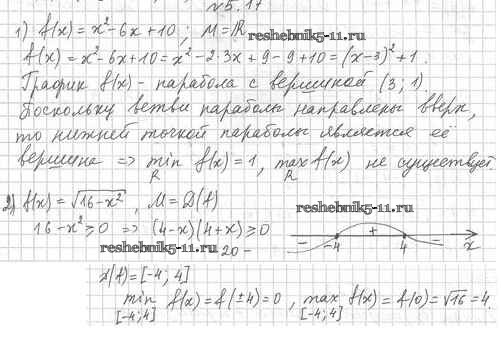 №5.17
1) f(x) = x² - 6x + 10 ; M = ℝ
reshebnik5-11.ru
f(x) = x² - 6x + 10 = x² - 2·3x + 9 - 9 + 10 = (x - 3)² + 1.
График f(x) - парабола с вершиной (3; 1)
Поскольку ветви параболы направлены вверх,
то нижней точкой параболы является её
вершина => min f(x) = 1, max f(x) не существует.
R R
2) f(x) = √16 - x² , M = D(f)
reshebnik5-11.ru
16 - x² ≥ 0 => (4 - x)(4 + x) ≥ 0
- -4 + 4 - x
reshebnik5-11.ru
20 -
D(f) = [-4; 4]
min f(x) = f(±4) = 0 , max f(x) = f(0) = √16 = 4.
[-4;4] [-4;4]